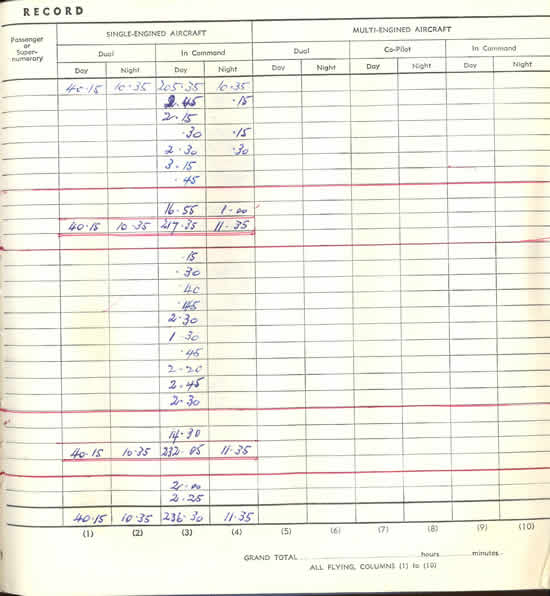 RECORD
Passenger or Super-numerary
SINGLE-ENGINED AIRCRAFT MULTI-ENGINED AIRCRAFT
Dual In Command Dual Co-Pilot In Command
Day Night Day Night Day Night Day Night Day Night
40.15 10.35 205.35 10.35
2.45 .15
2.15
.30 .15
2.30 .30
3.15
.45
16.55 1.00
40.15 10.35 217.35 11.35
.15
.30
.40
.45
2.30
1.30
.45
2.20
2.45
2.30
14.30
40.15 10.35 232.05 11.35
2.00
2.25
40.15 10.35 236.30 11.35
(1) (2) (3) (4) (5) (6) (7) (8) (9) (10)
GRAND TOTAL hours minutes
ALL FLYING, COLUMNS (1) to (10)